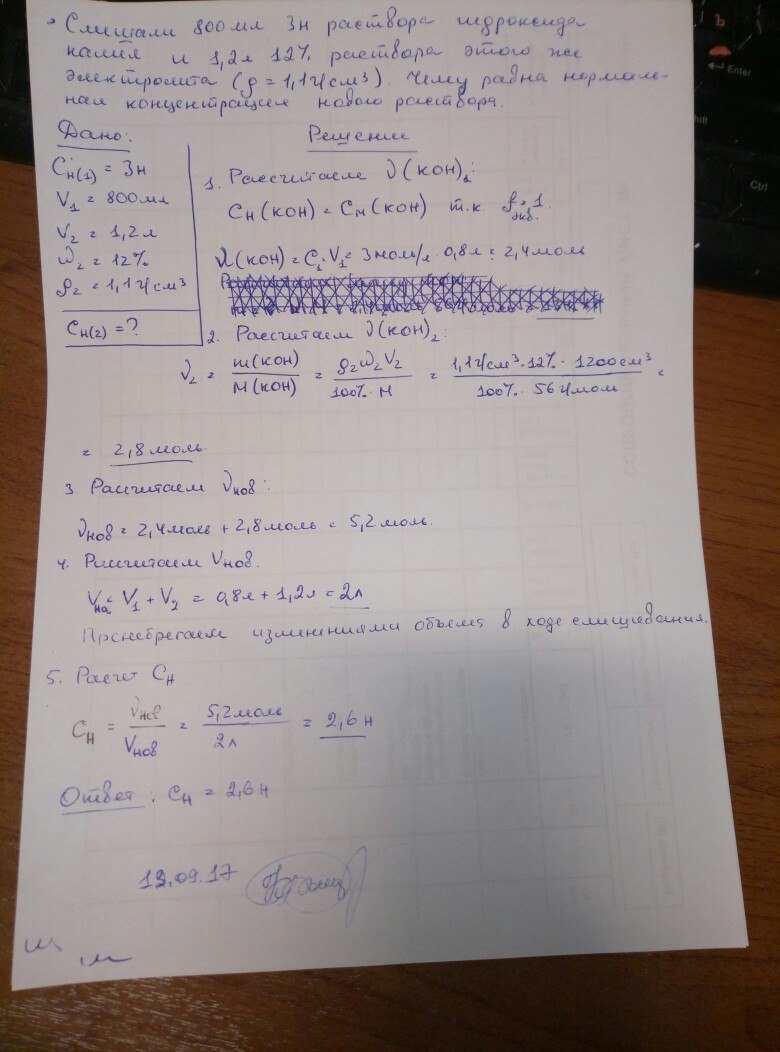 Смешали 800 мл 3н раствора гидроксида
калия и 1,2л 12% раствора этого же
электролита (ρ = 1,1 г/см³). Чему равна нормаль-
ная концентрация нового раствора.
Дано:
C н(1) = 3н
V₁ = 800 мл
V₂ = 1,2 л
ω₂ = 12%
ρ₂ = 1,1 г/см³
C н(2) = ?
Решение
1. Рассчитаем ν(KOH)₁:
Cн(KOH) = Cм(KOH) т.к. fэкв. = 1
ν(KOH) = C₁·V₁ = 3 моль/л · 0,8л = 2,4 моль
2. Рассчитаем ν(KOH)₂:
ν₂ = m(KOH) / M(KOH) = ρ₂ω₂V₂ / 100%·M = 1,1 г/см³·12%·1200см³ / 100%·56 г/моль =
= 2,8 моль.
3. Рассчитаем νнов:
νнов = 2,4 моль + 2,8 моль = 5,2 моль.
4. Рассчитаем Vнов.
V = V₁ + V₂ = 0,8л + 1,2л = 2л
Пренебрегаем изменениями объема в ходе смешивания.
5. Расчет Cн
Cн = νнов / Vнов = 5,2 моль / 2л = 2,6 н
Ответ: Cн = 2,6 н
13.09.17
Enter
Ctrl